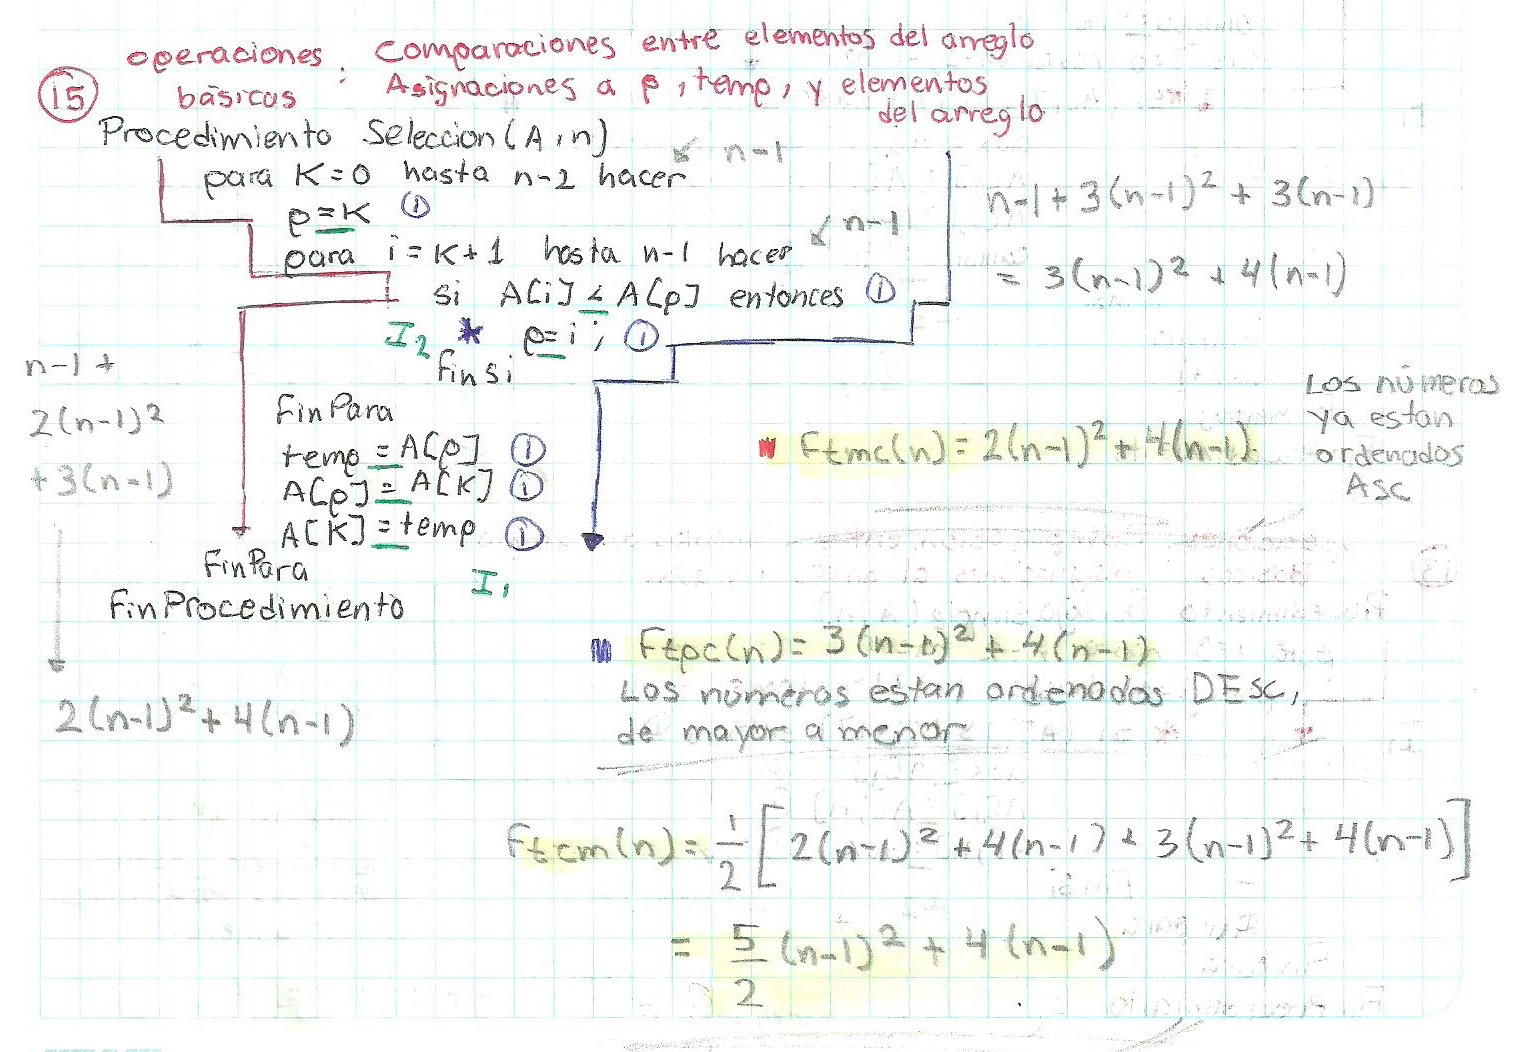 operaciones básicas : Comparaciones entre elementos del arreglo
Asignaciones a p, temp, y elementos del arreglo.
15
Procedimiento Seleccion(A,n)
para K=0 hasta n-2 hacer ↙ n-1
p=K ①
para i=K+1 hasta n-1 hacer ↙ n-1
si A[i] < A[p] entonces ①
I2 * p=i; ①
fin si
FinPara
temp = A[p] ①
A[p] = A[K] ①
A[K] = temp ①
FinPara
I1
FinProcedimiento
n-1 +
2(n-1)²
+3(n-1)
2(n-1)²+4(n-1)
n-1+3(n-1)² + 3(n-1)
= 3(n-1)² + 4(n-1)
Ftmc(n)= 2(n-1)²+4(n-1)
Los números
ya estan
ordenados
ASC
Ftpc(n)= 3(n-1)² + 4(n-1)
Los números estan ordenados DESC,
de mayor a menor
Ftcm(n)= 1/2 [2(n-1)² +4(n-1) + 3(n-1)²+ 4(n-1)]
= 5/2 (n-1)² + 4(n-1)